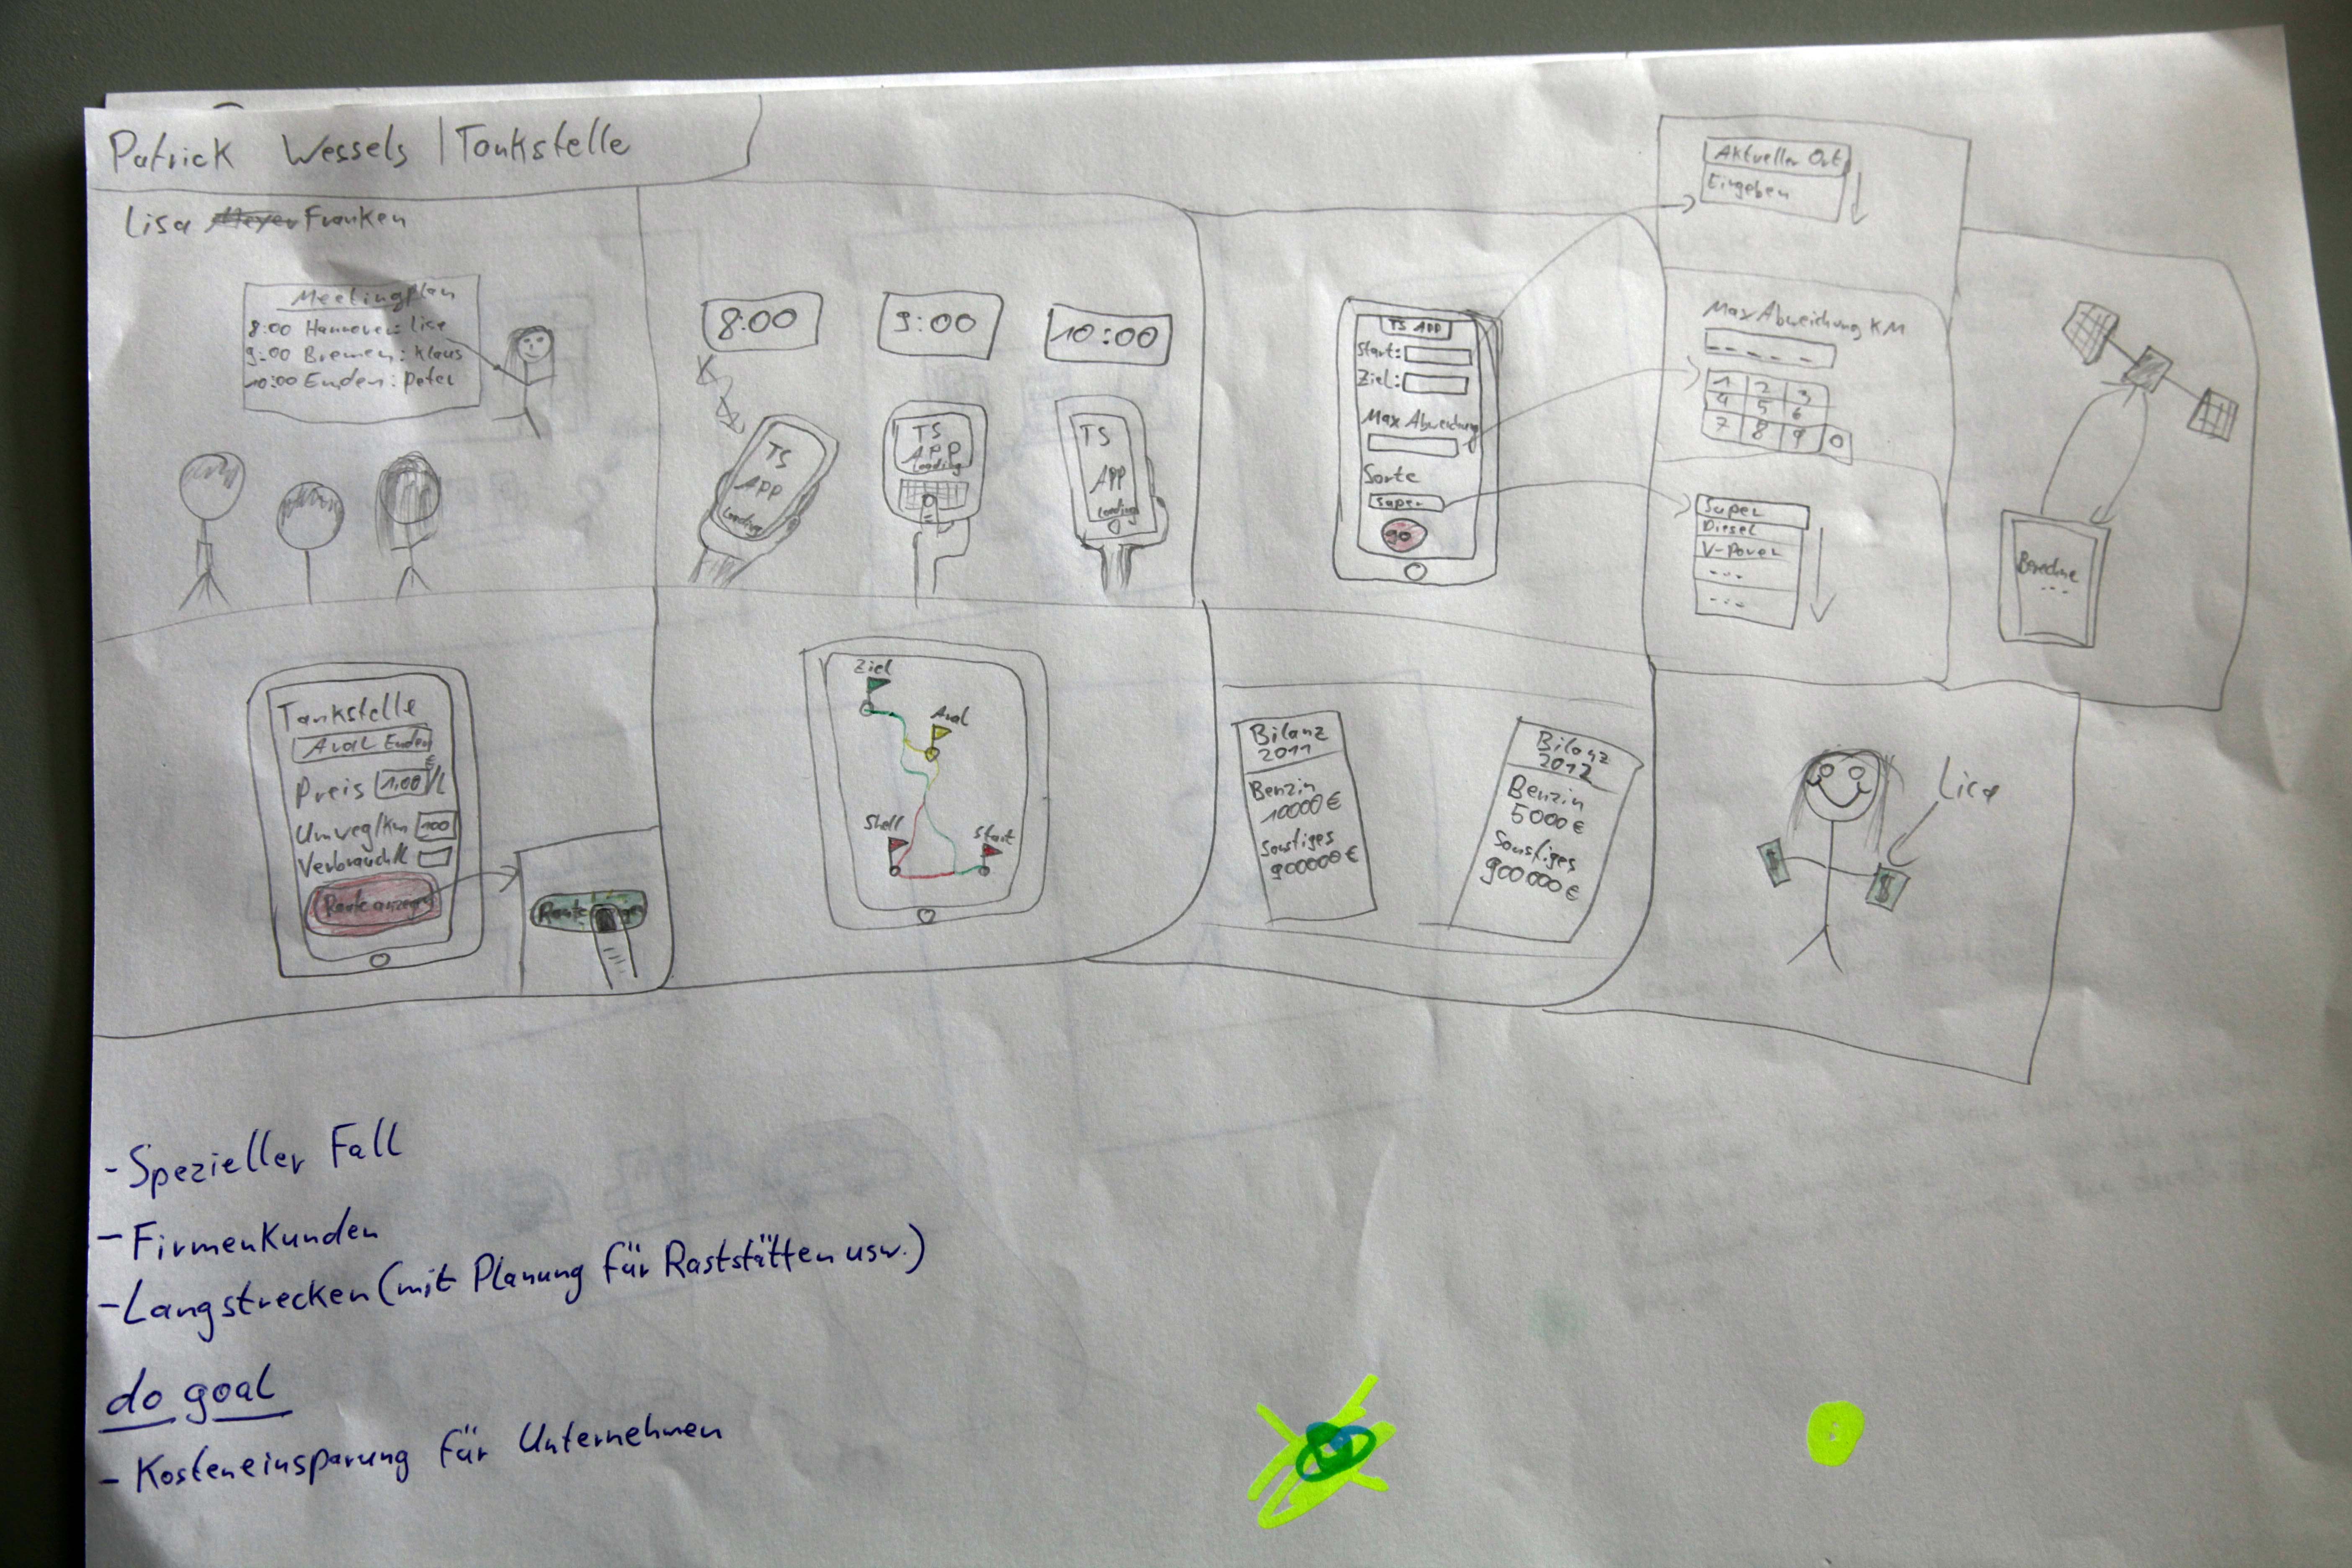 Patrick Wessels | Tankstelle
Lisa Franken
Meetingplan
8:00 Hannover: Lisa
9:00 Bremen: Klaus
10:00 Emden: Peter
8:00
9:00
10:00
TS
APP
Loading
TS
APP
Loading
TS
APP
Loading
TS APP
Start:
Ziel:
Max Abweichung
Sorte
Super
go
Aktueller Ort
Eingeben
Max Abweichung KM
- - - - -
1 2 3
4 5 6
7 8 9 0
Super
Diesel
V-Power
---
---
Berechne
...
Tankstelle
Aral Emden
Preis 1,00 €/L
Umweg/km 100
Verbrauch/L
Route anzeigen
Route
Ziel
Aral
Shell
Start
Bilanz
2011
Benzin
10000€
Sonstiges
900000€
Bilanz
2012
Benzin
5000€
Sonstiges
900000€
Lisa
$
$
- Spezieller Fall
- Firmenkunden
- Langstrecken (mit Planung für Raststätten usw.)
do goal
- Kosteneinsparung für Unternehmen